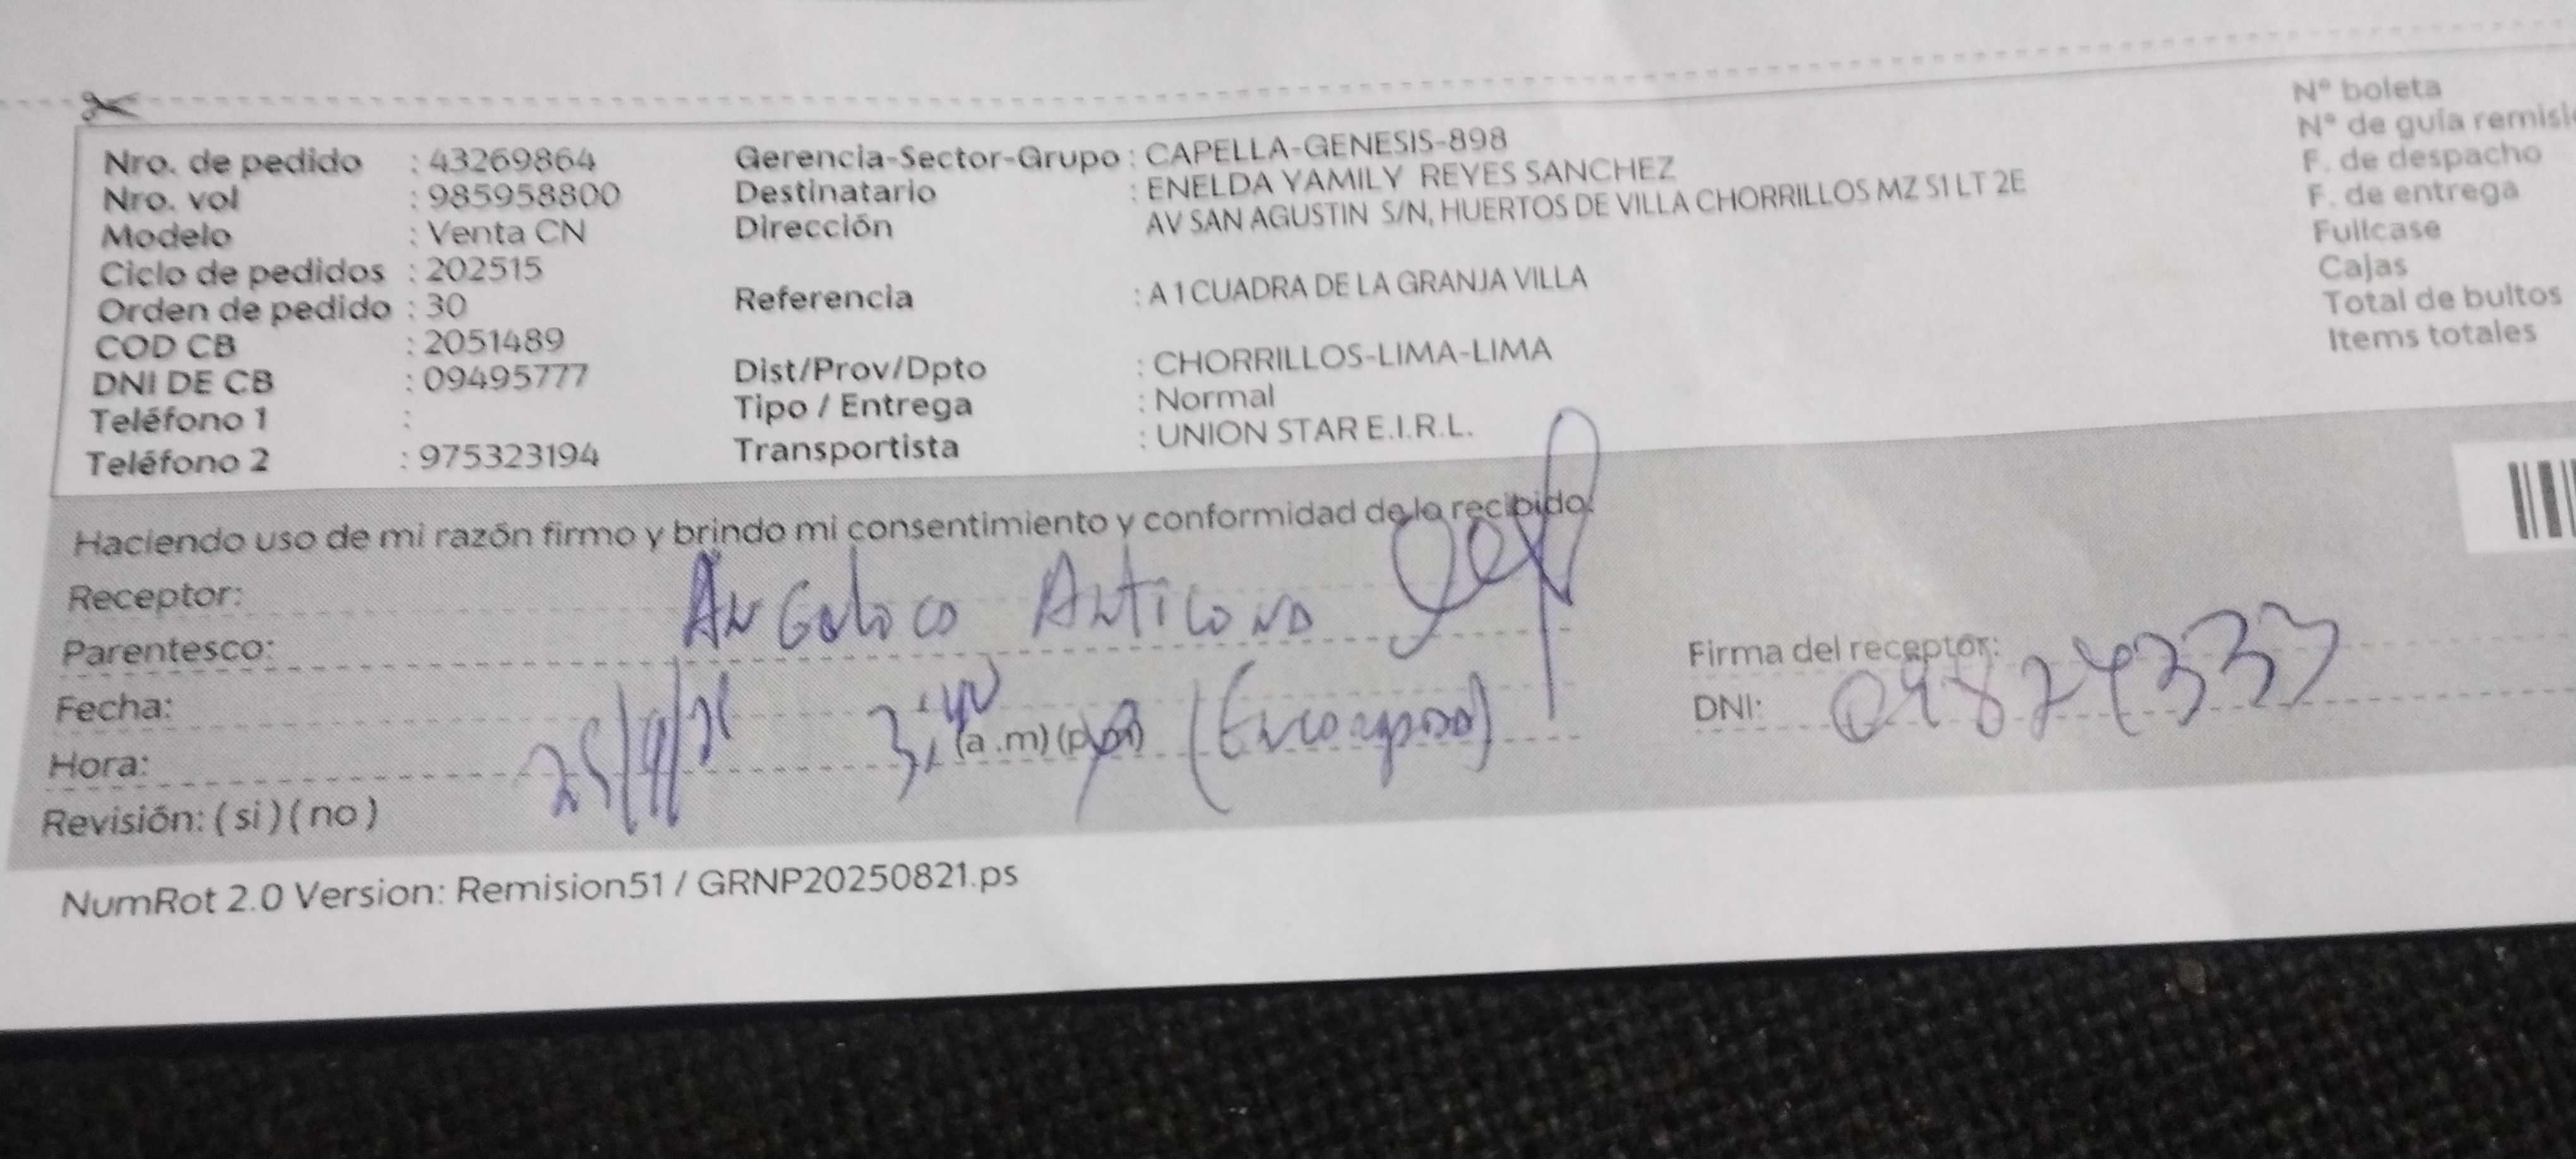 Nro. de pedido : 43269864
Nro. vol : 985958800
Modelo : Venta CN
Ciclo de pedidos : 202515
Orden de pedido : 30
COD CB : 2051489
DNI DE CB : 09495777
Teléfono 1 :
Teléfono 2 : 975323194
Gerencia-Sector-Grupo : CAPELLA-GENESIS-898
Destinatario : ENELDA YAMILY REYES SANCHEZ
Dirección AV SAN AGUSTIN S/N, HUERTOS DE VILLA CHORRILLOS MZ S1 LT 2E
Referencia : A 1 CUADRA DE LA GRANJA VILLA
Dist/Prov/Dpto : CHORRILLOS-LIMA-LIMA
Tipo / Entrega : Normal
Transportista : UNION STAR E.I.R.L.
N° boleta
N° de guía
F. de despacho
F. de entrega
Fullcase
Cajas
Total de bultos
Items totales
Haciendo uso de mi razón firmo y brindo mi consentimiento y conformidad de lo recibido.
Receptor:
Parentesco:
Fecha:
Hora: 3:40 (a .m)
Revisión: ( si ) ( no )
Firma del receptor:
DNI:
NumRot 2.0 Version: Remision51 / GRNP20250821.ps